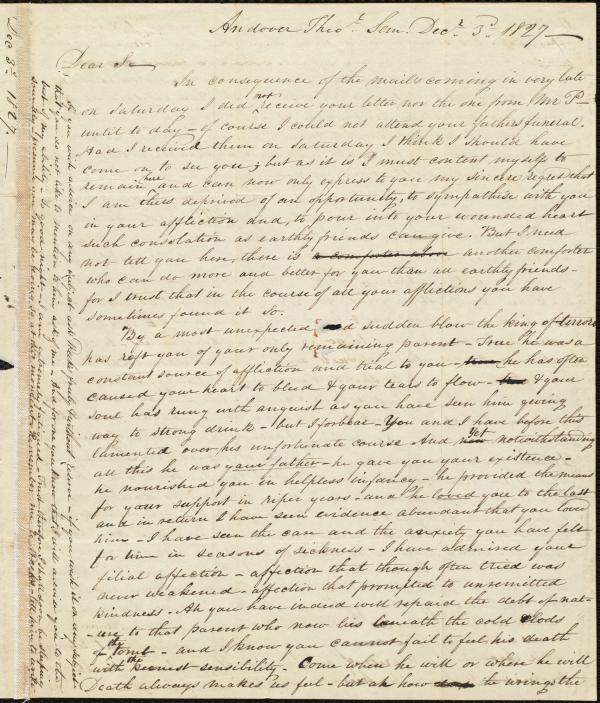 Andover Theol. Sem. Decr. 3d. 1827—
Dear Sr—
In consequence of the mails coming in very late
on Saturday I did not receive your letter nor the one from Mr P—
until to day—of course I could not attend your fathers funeral.
Had I received them on Saturday I think I should have
come on to see you; but as it is I must content myself to
remain here and can now only express to you my sincere regret that
I am thus deprived of an opportunity, to sympathise with you
in your affliction and, to pour into your wounded heart
such consolation as earthly friends can give. But I need
not tell you here, there is a comforter above another comforter
who can do more and better for you than all earthly friends—
for I trust that in the course of all your afflictions you have
sometimes found it so.
By a most unexpected and sudden blow the king of terrors
has reft you of your only remaining parent—True he was a
constant source of affliction and trial to you—he has often
caused your heart to bleed & your tears to flow—& your
soul has rung with anguish as you have seen him giving
way to strong drink—but I forbear—You and I have before this
lamented over his unfortunate course And yet notwithstanding
all this he was your father—he gave you your existence—
he nourished you in helpless infancy—he provided the means
for your support in riper years—and he loved you to the last
and in return I have seen evidence abundant that you loved
him—I have seen the care and the anxiety you have felt
for him in seasons of sickness—I have admired your
filial affection—affection that though often tried was
never weakened—affection that prompted to unremitted
kindness—Ah you have indeed well repaid the debt of nat-
-ure to that parent who now lies beneath the cold clods
of the tomb—and I know you cannot fail to feel his death
with the keenest sensibility. Come when he will or where he will
Death always makes us feel—but ah how he wrings the
Dec 3d. 1827—